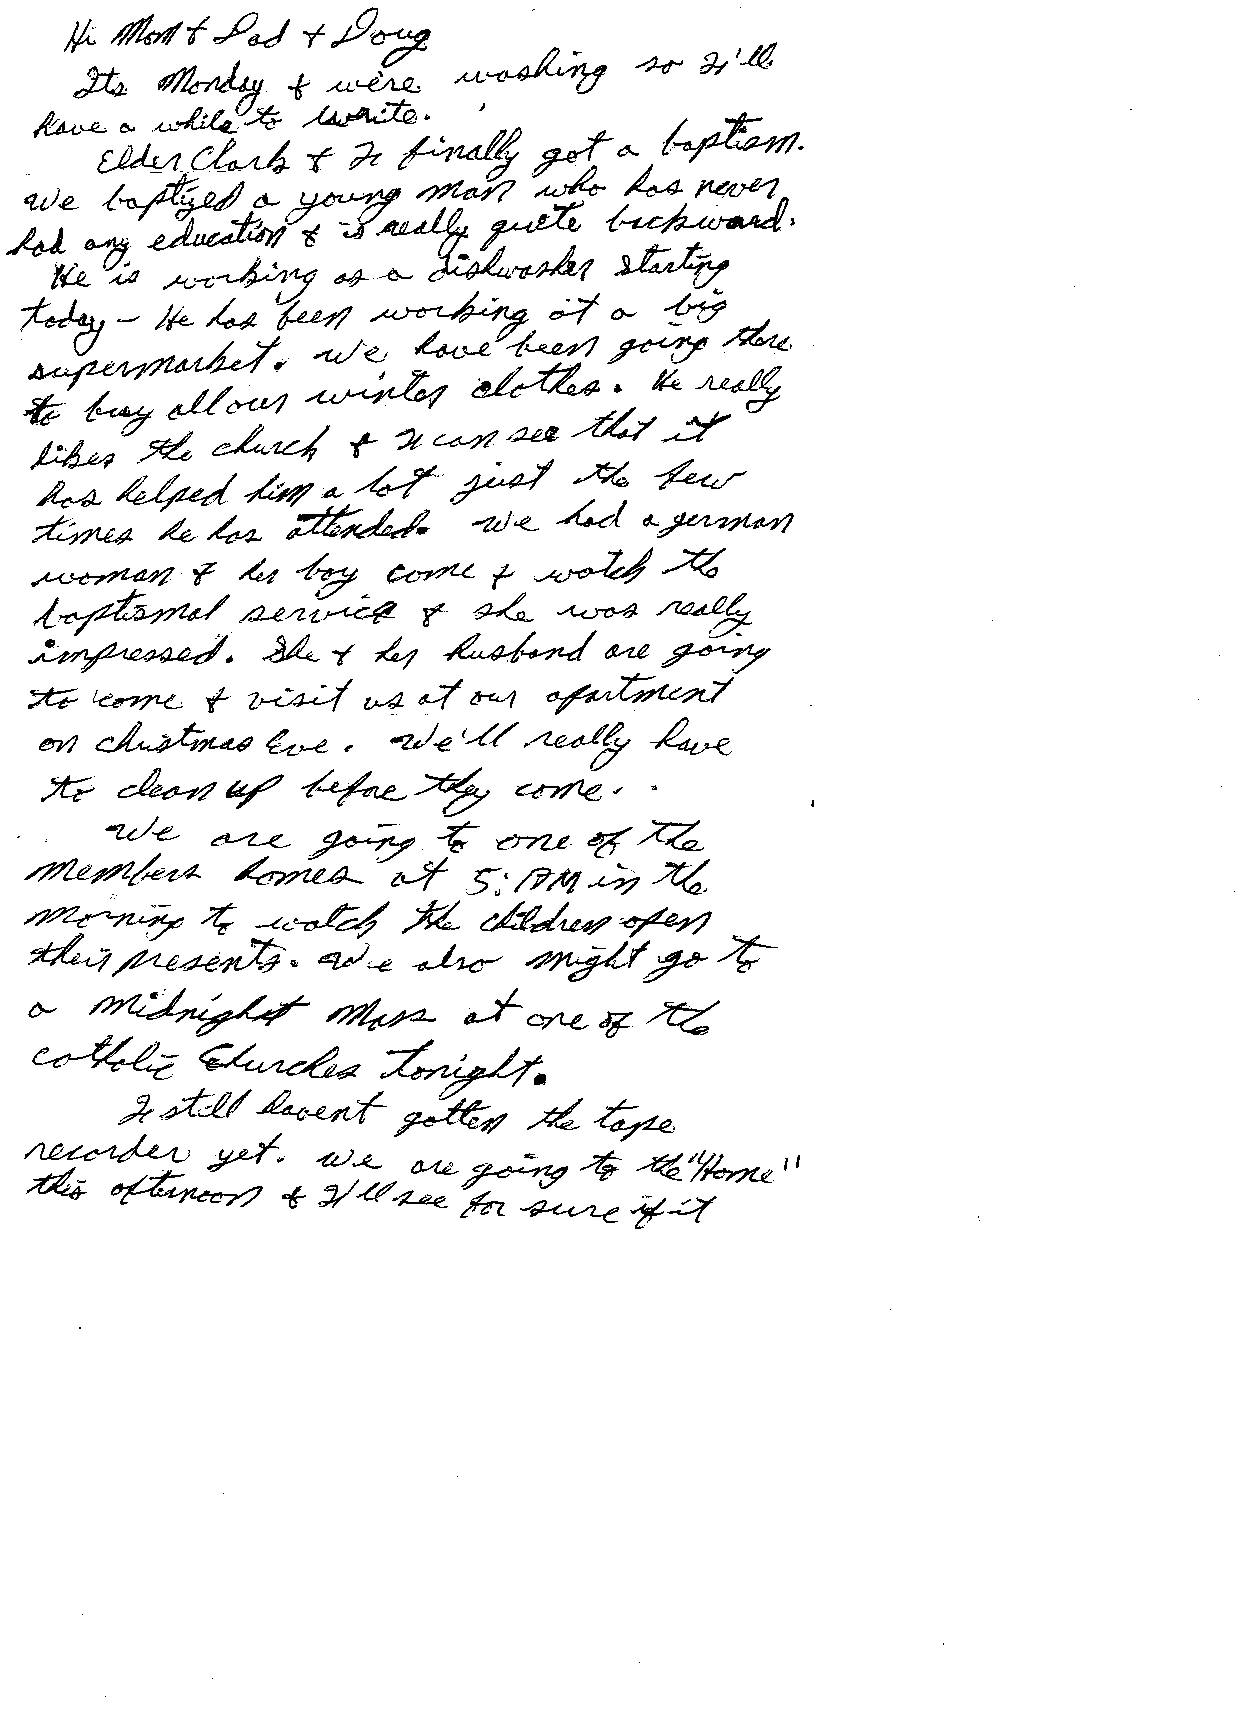 Hi Mom + Dad + Doug
Its Monday + we're washing so I'll
have a while to write.
Elder Clark + I finally got a baptism.
We baptized a young man who has never
had any education + is really quite backward.
He is working as a dishwasher starting
today - He has been working at a big
supermarket. We have been going there
to buy all our winter clothes. He really
likes the church + I can see that it
has helped him a lot just the few
times he has attended. We had a german
woman + her boy come + watch the
baptismal service + she was really
impressed. She + her husband are going
to come + visit us at our apartment
on christmas Eve. We'll really have
to clean up before they come.
We are going to one of the
members homes at 5: AM in the
morning to watch the children open
their presents. We also might go to
a midnight Mass at one of the
catholic Churches tonight.
I still havent gotten the tape
recorder yet. We are going to the "Home"
this afternoon + I'll see for sure if it